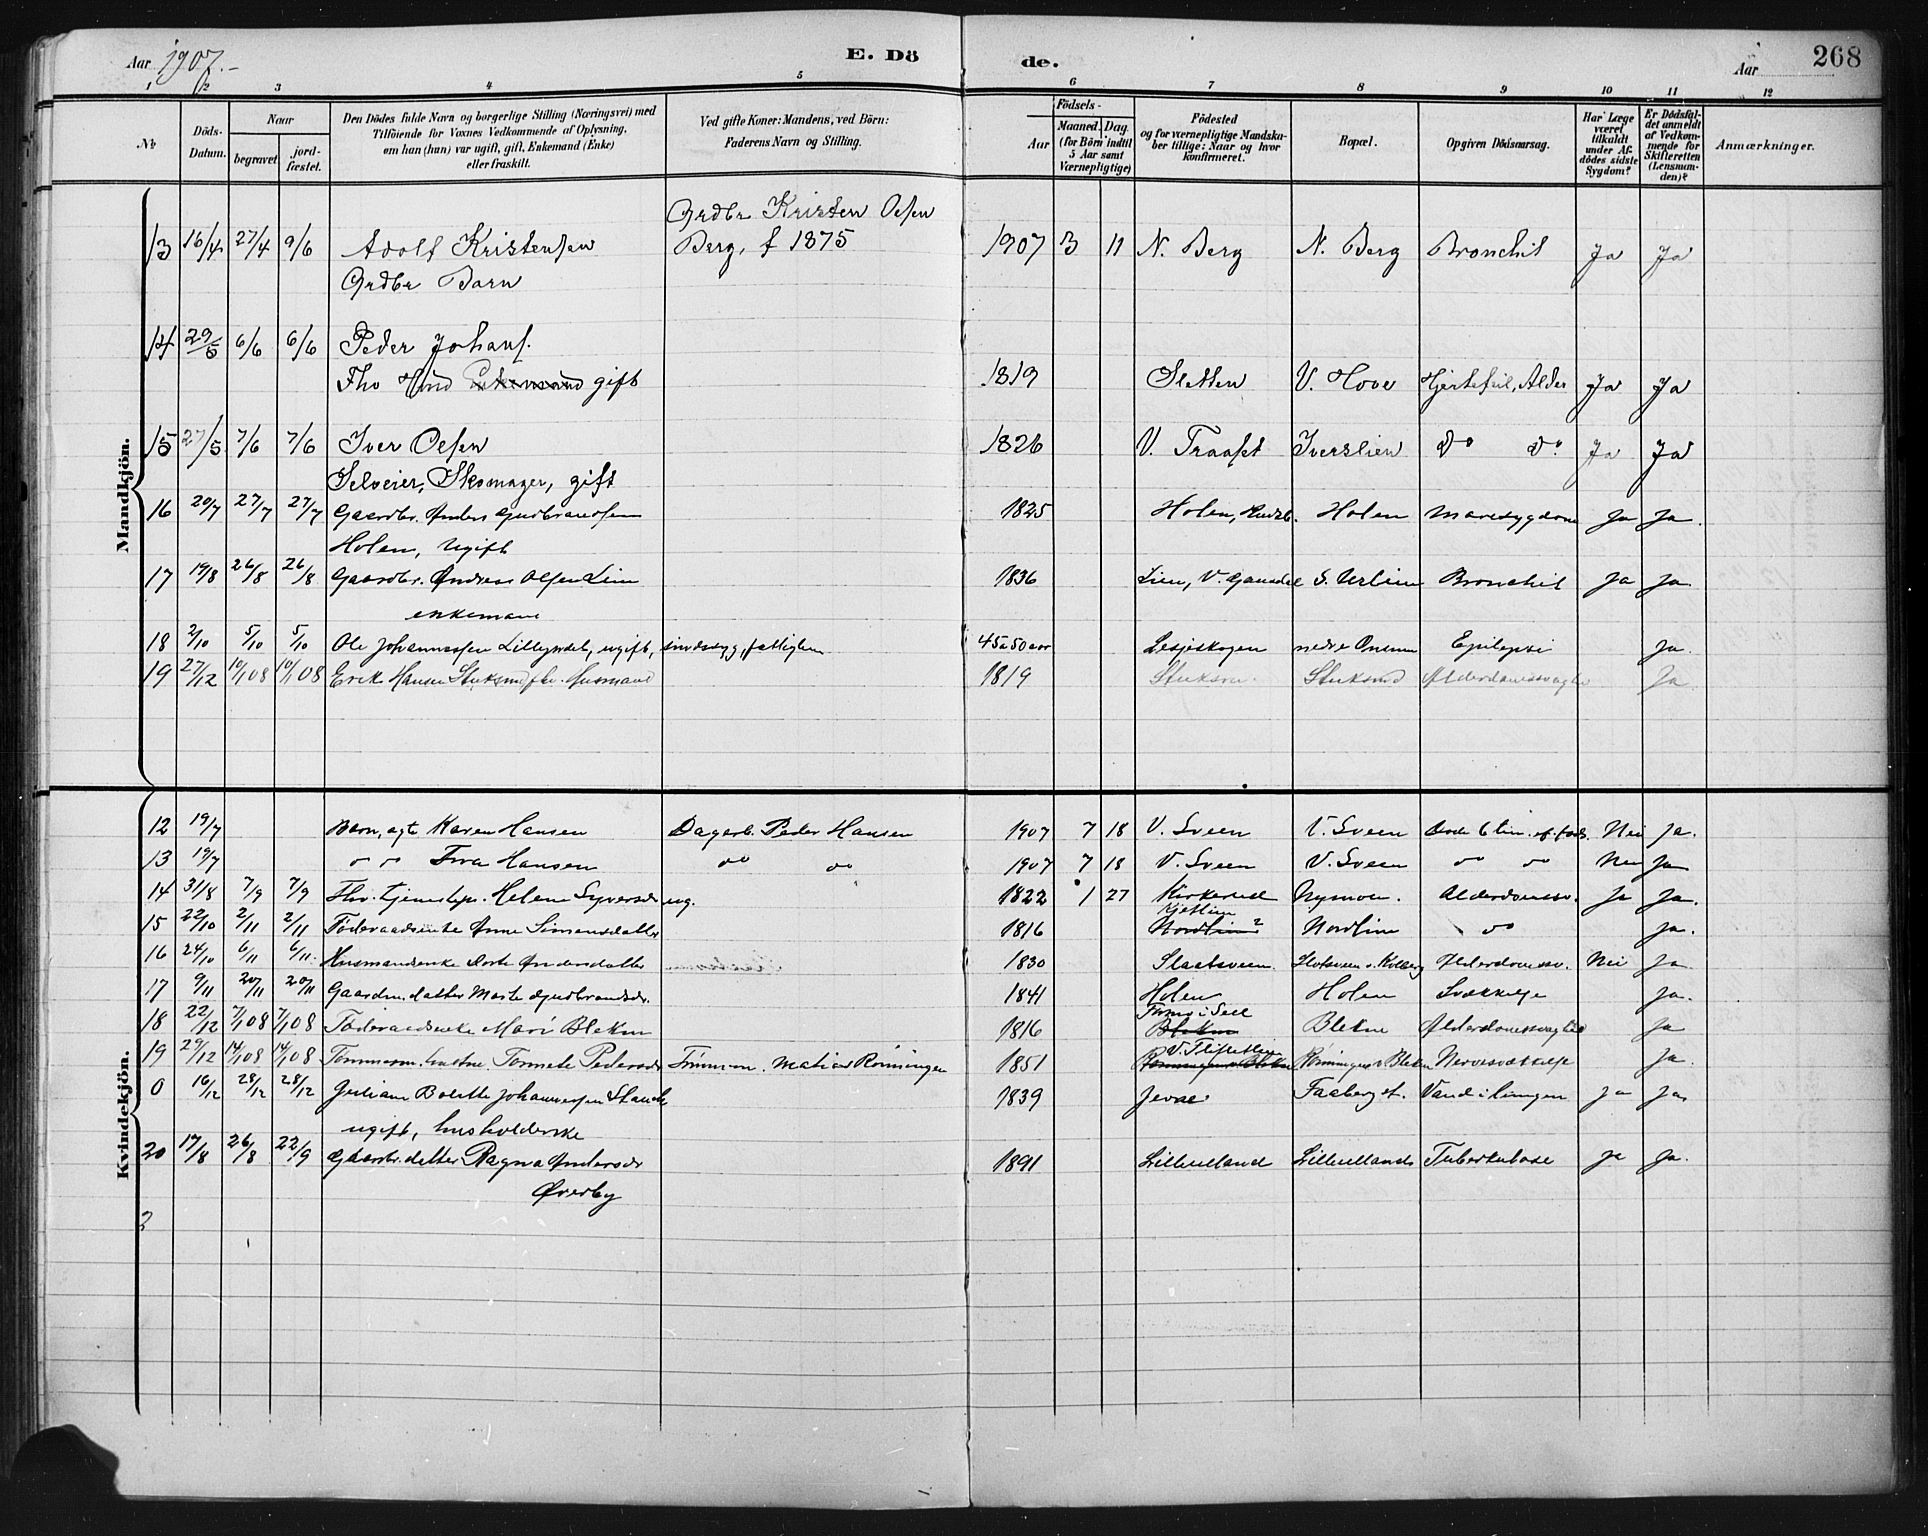 Aar 1907.-
E. Dö
de.
Aar
268
1 2 3 4 5 6 7 8 9 10 11 12
No
Döds-Datum.
Naar
begravet
jord-fæstet.
Den Dödes fulde Navn og borgerlige Stilling (Næringsvei) med
Tilföiende for Voxnes Vedkommende af Oplysning,
om han (hun) var ugift, gift, Enkemand (Enke)
eller fraskilt.
Ved gifte Koner: Mandens, ved Börn:
Faderens Navn og Stilling.
Födsels-
Aar
Maaned. Dag.
(for Börn indtil
5 Aar samt
Værnepligtige)
Födested
og for værnepligtige Mandska-
ber tillige: Naar og hvor
konfirmeret.
Bopæl.
Opgiven Dödsaarsag.
Har Læge
været
tilkaldt
under Af-
dödes sidste
Sygdom?
Er Dödsfal-
det anmeldt
af Vedkom-
mende for
Skifteretten
(Lensman-
den)?
Anmærkninger.
Mandkjön.
Grdbr Kristen Olsen
13 16/4 27/4 9/6 Adolf Kristensen Berg, f 1875 1907 3 11 N. Berg N. Berg Bronchit Ja Ja
Grdbr Barn
14 29/5 6/6 6/6 Peder Johans.
Fhv Hmd Enkemand gift 1819 Sletten V. Hove Hjertefeil, Alder Ja Ja
15 27/5 7/6 7/6 Iver Olsen 1826 V. Traaset Iverslien Do Do Ja Ja
Selveier, Skomager, gift
16 20/7 27/7 27/7 Gaardbr. Anders Gudbrandsen 1825 Holen, Holen Mavesygdom Ja Ja.
Holen, Ugift
17 19/8 26/8 26/8 Gaardbr. Andreas Olsen Lien 1836 Lien, V. Gausdal Bronchit Ja Ja
enkemand
18 2/10 5/10 5/10 Ole Johannessen ugift, sindssyg, fattiglem 45 a 50 aar Lesjeskogen nedre Epilepsi Ja.
19 27/12 10/1 08 10/1 08 Erik Hansen 1819 Ja.
Kvindekjön.
12 19/7 Barn, ægt Karen Hansen Dagarb. Peder Hansen 1907 7 18 V. Sveen V. Sveen Døde 6 tim. ef. føds. Nei Ja.
13 19/7 do do Hansen do do 1907 7 18 V. Sveen V. Sveen do do Nei Ja
14 31/8 7/9 7/9 Fhv. tjenestep. Helene Syversdr ug. 1822 1 27 Kirkerud Nymoen. Alderdomssv. Ja Ja.
15 22/10 2/11 2/11 Föderaadsenke Anne Simensdatter 1816 Kjetlien Nordlien? Nordlien do Ja.
16 24/10 6/11 6/11. Husmandsenke Dorte Andersdatter 1830 Slaatsveen. Alderdomssv. Nei Ja.
17 9/11 20/11 20/11 Gaardm. datter Marte Gudbrandsdr. 1841 Holen Holen Svækkelse Ja.
18 22/12 7/1 08 7/1 08 Föderaadsenke Mari Bleken 1816 Bleken Bleken Alderdomssvaghed Ja
19 29/12 14/1 08 14/1 08 Tömmerm. hustru Tommete Pedersdr Tömmerm. Matias Rönningen 1851 Rönningen u Bleken Nervesvækkelse Ja.
0 16/12 28/12 28/12 Juliane Bolette Johannessen 1839 Jevne Faaberg st. Vand i lungen Ja Ja.
ugift, husholderske
20 17/8 26/8 22/9 Gaardbr. datter Ragna Andersdr 1891 Lilleulland Lilleulland Tuberkulose Ja Ja.
Øverby
2